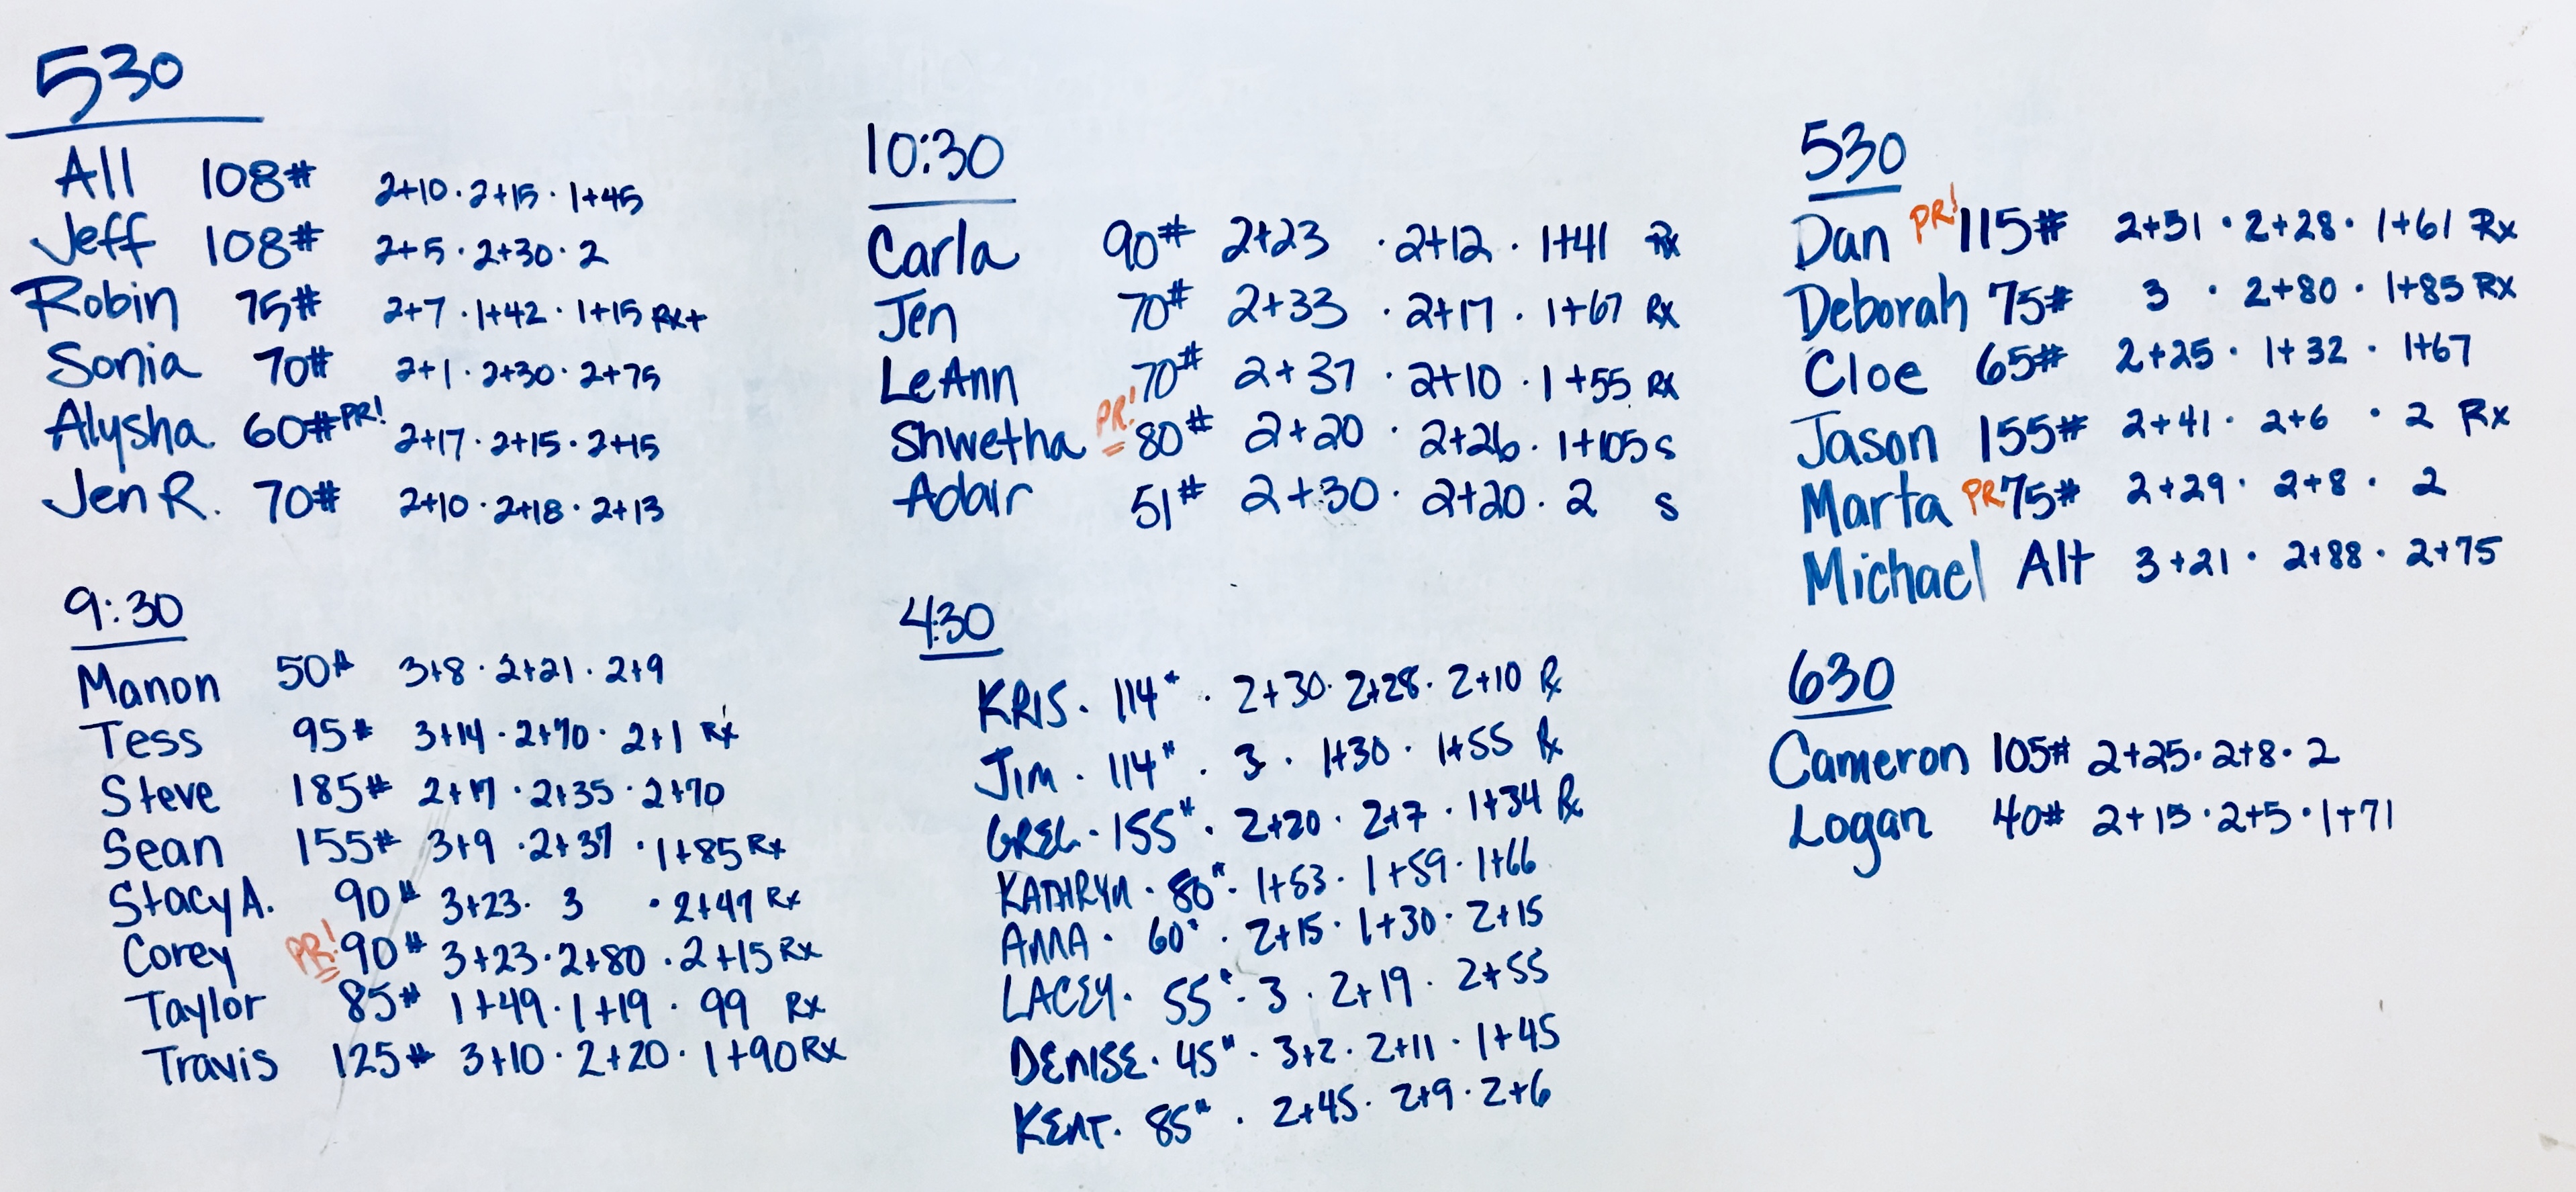 530
All 108# 2+10 · 2+15 · 1+45
Jeff 108# 2+5 · 2+30 · 2
Robin 75# 2+7 · 1+42 · 1+15 Rx+
Sonia 70# 2+1 · 2+30 · 2+75
Alysha 60# PR! 2+17 · 2+15 · 2+15
Jen R. 70# 2+10 · 2+18 · 2+13
9:30
Manon 50# 3+8 · 2+21 · 2+9
Tess 95# 3+14 · 2+70 · 2+1 Rx
Steve 185# 2+17 · 2+35 · 2+70
Sean 155# 3+9 · 2+37 · 1+85 Rx
Stacy A. 90# 3+23 · 3 · 2+47 Rx
Corey PR! 90# 3+23 · 2+80 · 2+15 Rx
Taylor 85# 1+49 · 1+19 · 99 Rx
Travis 125# 3+10 · 2+20 · 1+90 Rx
10:30
Carla 90# 2+23 · 2+12 · 1+41 Rx
Jen 70# 2+33 · 2+17 · 1+67 Rx
LeAnn 70# 2+37 · 2+10 · 1+55 Rx
Shwetha PR! 80# 2+20 · 2+26 · 1+105 s
Adair 51# 2+30 · 2+20 · 2 s
430
KRIS · 114# · 2+30 · 2+28 · 2+10 Rx
JIM · 114# · 3 · 1+30 · 1+55 Rx
GREG · 155# · 2+20 · 2+7 · 1+34 Rx
KATHRYN · 80# · 1+53 · 1+59 · 1+66
ANNA · 60# · 2+15 · 1+30 · 2+15
LACEY · 55# · 3 · 2+19 · 2+55
DENISE · 45# · 3+2 · 2+11 · 1+45
KENT · 85# · 2+45 · 2+9 · 2+6
530
Dan PR! 115# 2+31 · 2+28 · 1+61 Rx
Deborah 75# 3 · 2+80 · 1+85 Rx
Cloe 65# 2+25 · 1+32 · 1+67
Jason 155# 2+41 · 2+6 · 2 Rx
Marta PR 75# 2+29 · 2+8 · 2
Michael Alt 3+21 · 2+88 · 2+75
630
Cameron 105# 2+25 · 2+8 · 2
Logan 40# 2+15 · 2+5 · 1+71